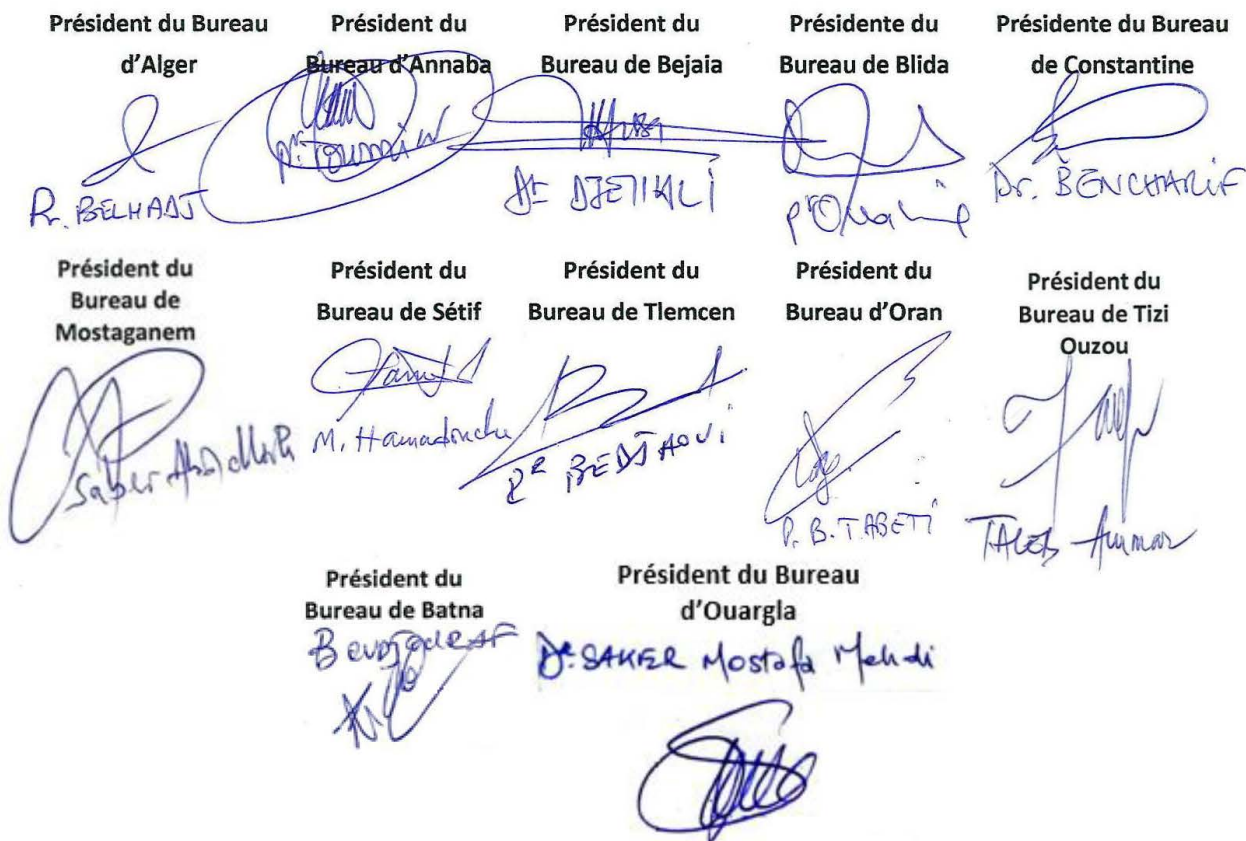 Président du Bureau
d'Alger
R. BELHADJ
Président du
Bureau d'Annaba
Pr. TOUMI
Président du
Bureau de Bejaia
Dr DJETHALI
Présidente du
Bureau de Blida
Présidente du Bureau
de Constantine
Dr. BENCHARIF
Président du
Bureau de
Mostaganem
Saber Abdelkrih
Président du
Bureau de Sétif
M. Hamadouche
Président du
Bureau de Tlemcen
Pr BEDJAOUI
Président du
Bureau d'Oran
P. B. TABETI
Président du
Bureau de Tizi
Ouzou
TALEB Ammar
Président du
Bureau de Batna
BOUDJELLAF
Président du Bureau
d'Ouargla
Dr. SAKER Mostafa Mehdi